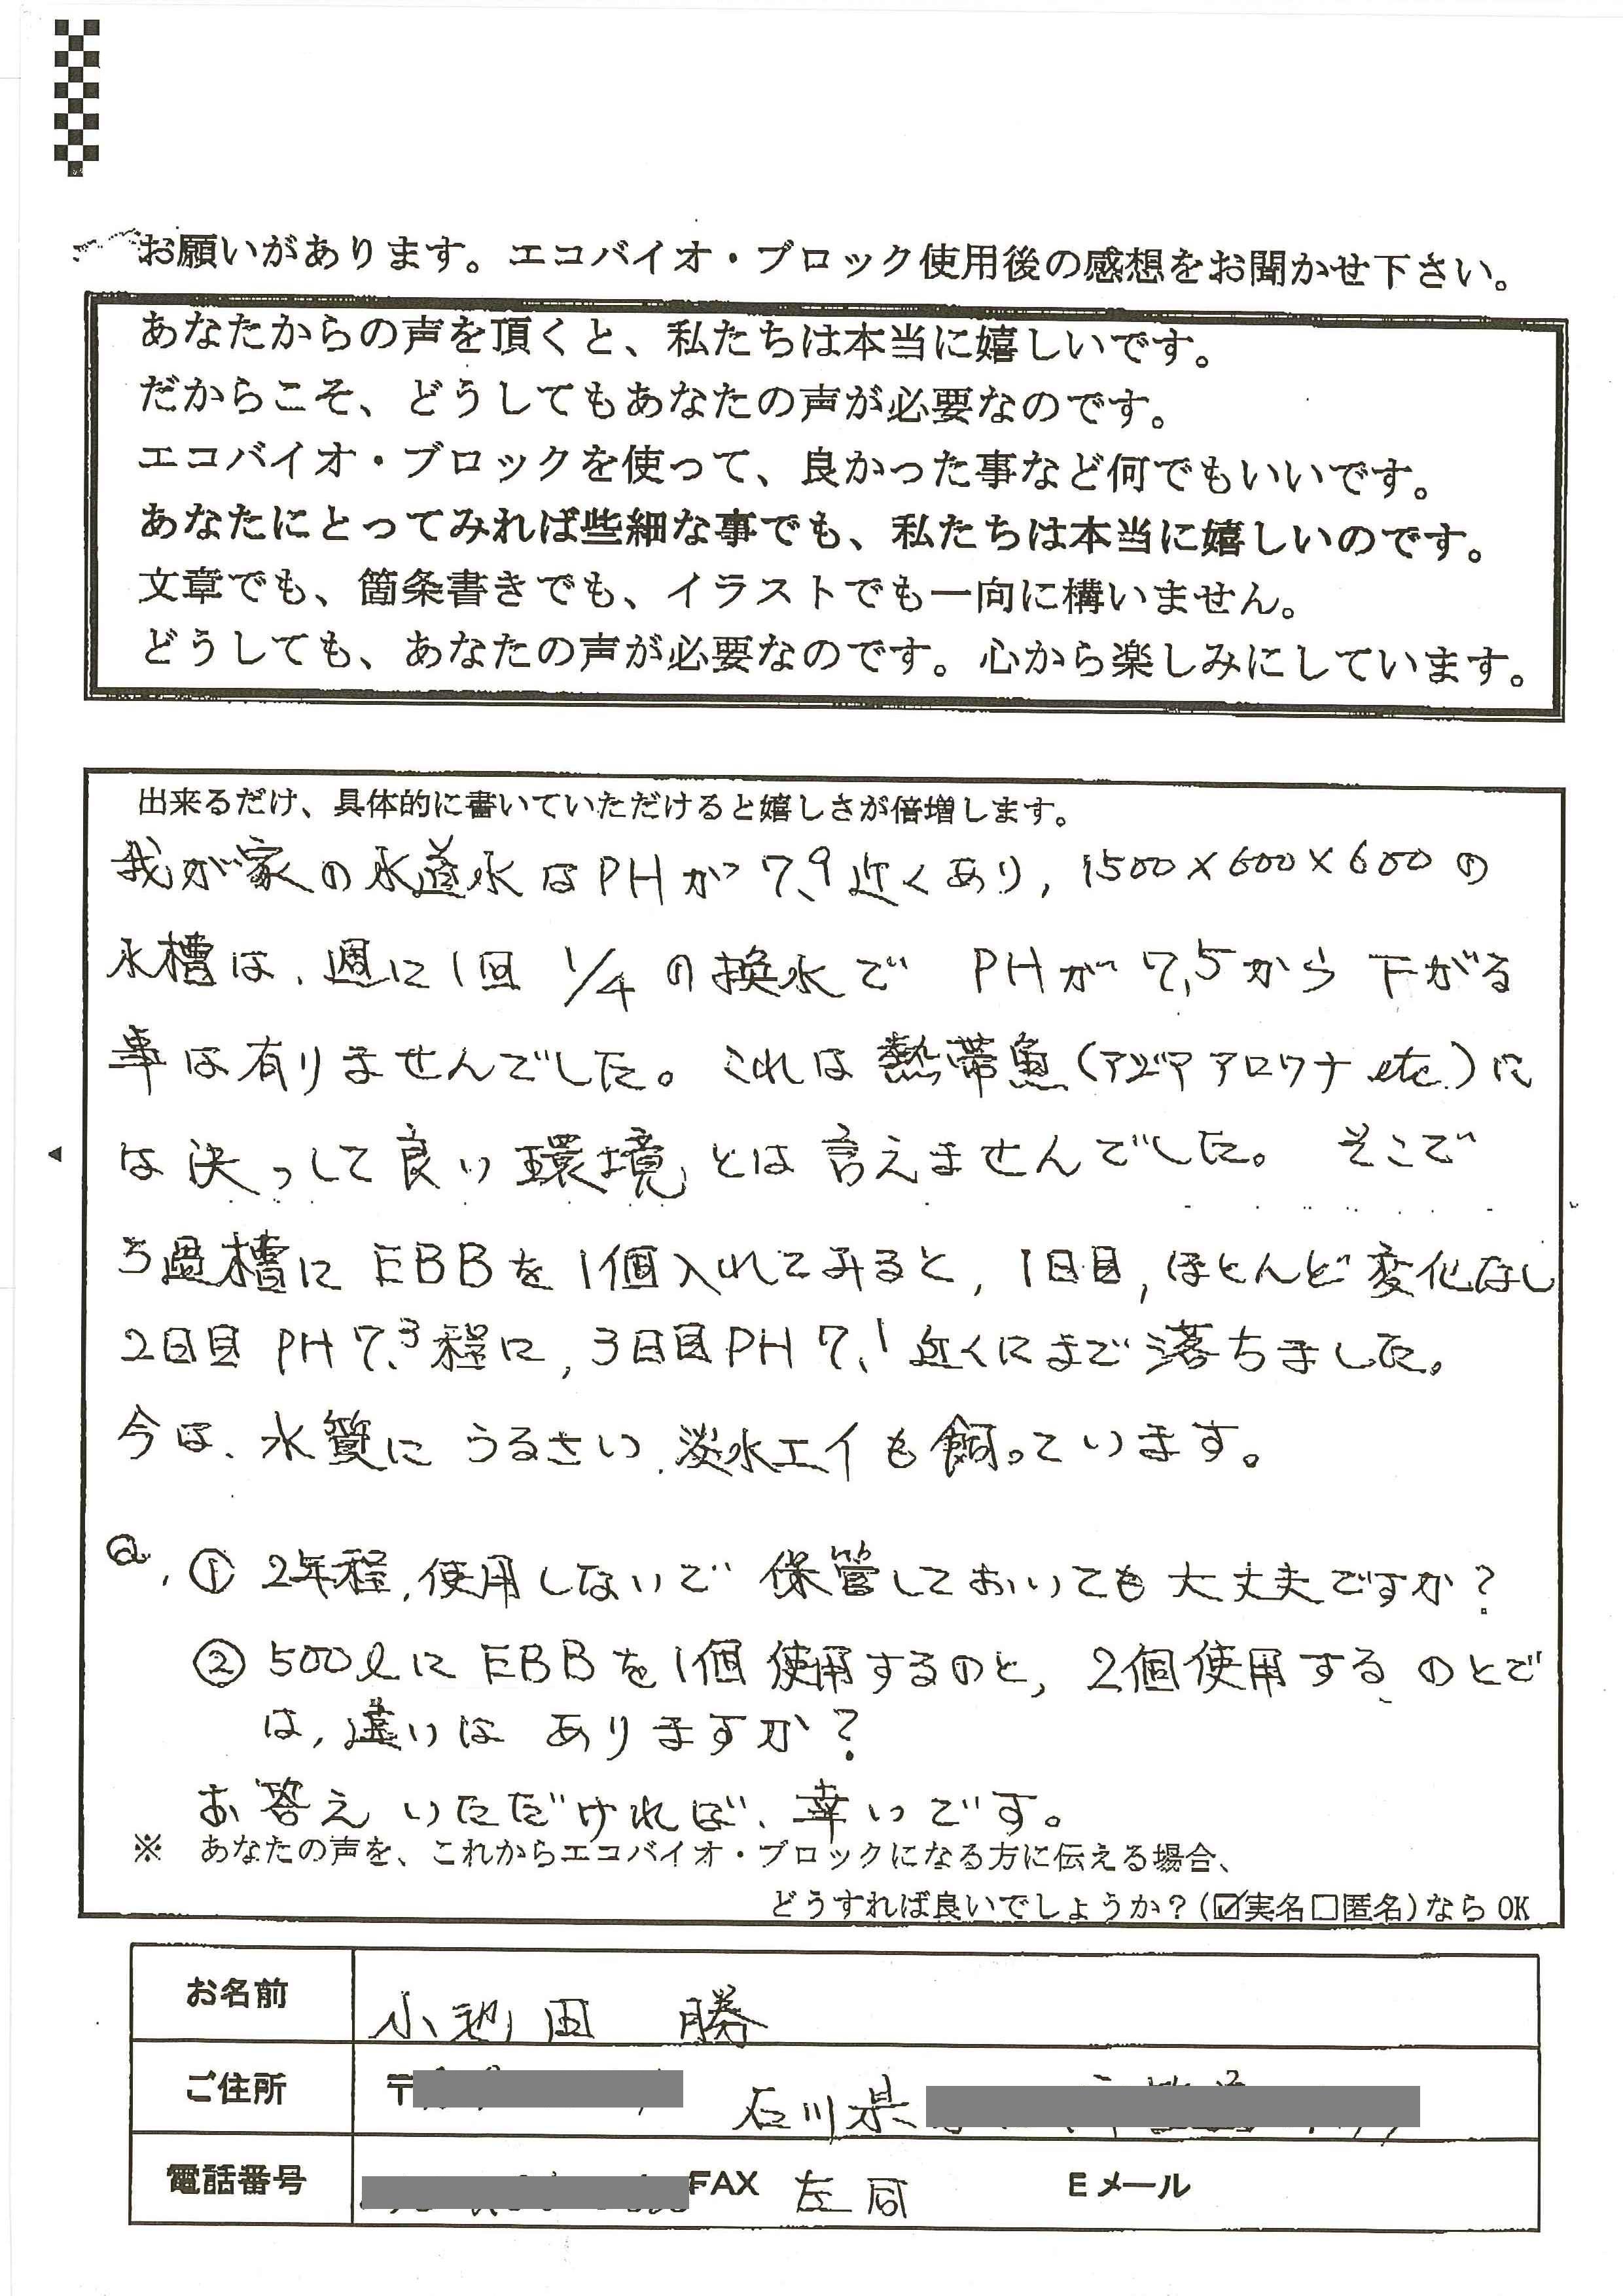 お願いがあります。エコバイオ・ブロック使用後の感想をお聞かせ下さい。
あなたからの声を頂くと、私たちは本当に嬉しいです。
だからこそ、どうしてもあなたの声が必要なのです。
エコバイオ・ブロックを使って、良かった事など何でもいいです。
あなたにとってみれば些細な事でも、私たちは本当に嬉しいのです。
文章でも、箇条書きでも、イラストでも一向に構いません。
どうしても、あなたの声が必要なのです。心から楽しみにしています。
出来るだけ、具体的に書いていただけると嬉しさが倍増します。
我が家の水道水はPHが7.9近くあり, 1500×600×600の
水槽は、週に1回 1/4の換水で PHが7.5から下がる
事は有りませんでした。これは熱帯魚(アジアアロワナetc.)に
は決っして良い環境とは言えませんでした。そこで
ろ過槽にEBBを1個入れてみると, 1日目, ほとんど変化なし
2日目 PH7.3程に, 3日目PH7.1近くにまで落ちました。
今は、水質にうるさい、淡水エイも飼っています。
Q, ① 2年程, 使用しないで保管しておいても大丈夫ですか?
② 500ℓにEBBを1個使用するのと, 2個使用するのとで
は, 違いはありますか?
お答えいただければ、幸いです。
※ あなたの声を、これからエコバイオ・ブロックになる方に伝える場合、
どうすれば良いでしょうか?(☑実名□匿名)ならOK
お名前 小池田 勝
ご住所 〒 石川県
電話番号 FAX 左同 Eメール